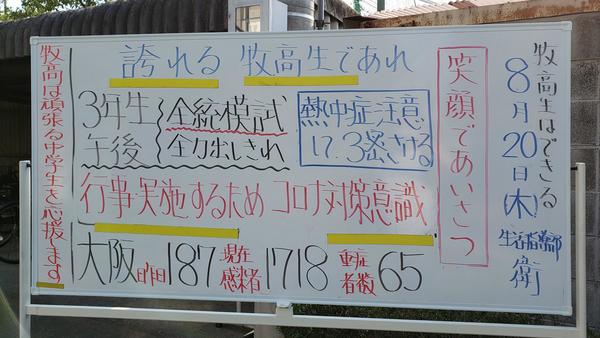 牧高生はできる
8月20日(木)
生活指導部 衛
笑顔であいさつ
誇れる 牧高生であれ
3年生 全統模試
午後 全力出しきれ
熱中症注意
17.3密さける
行事実施するため コロナ対策意識
大阪昨日187 現在感染者1718 重症者数65
牧高は頑張る中学生を応援します